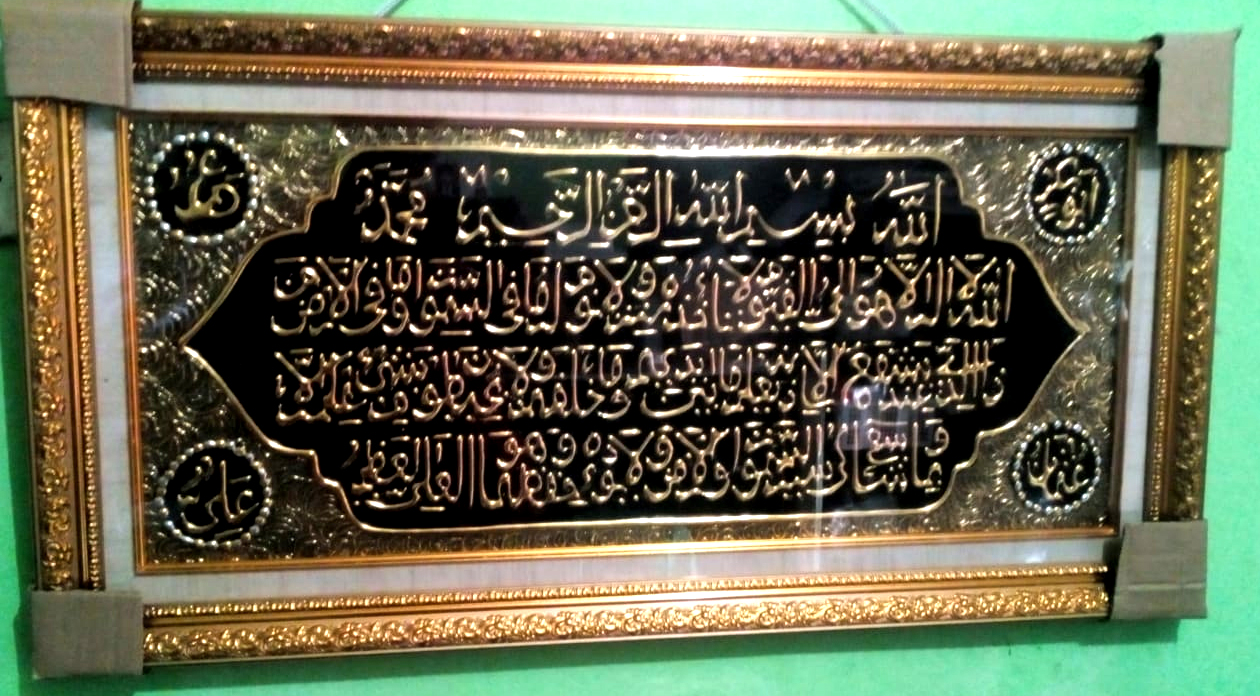 الله بسم الله الرحمن الرحيم محمد
أبو بكر
عمر
الله لا إله إلا هو الحي القيوم لا تأخذه سنة ولا نوم له ما في السموات وما في الأرض من
ذا الذي يشفع عنده إلا بإذنه يعلم ما بين أيديهم وما خلفهم ولا يحيطون بشيء من علمه إلا
بما شاء وسع كرسيه السموات والأرض ولا يؤده حفظهما وهو العلي العظيم
عثمان
علي